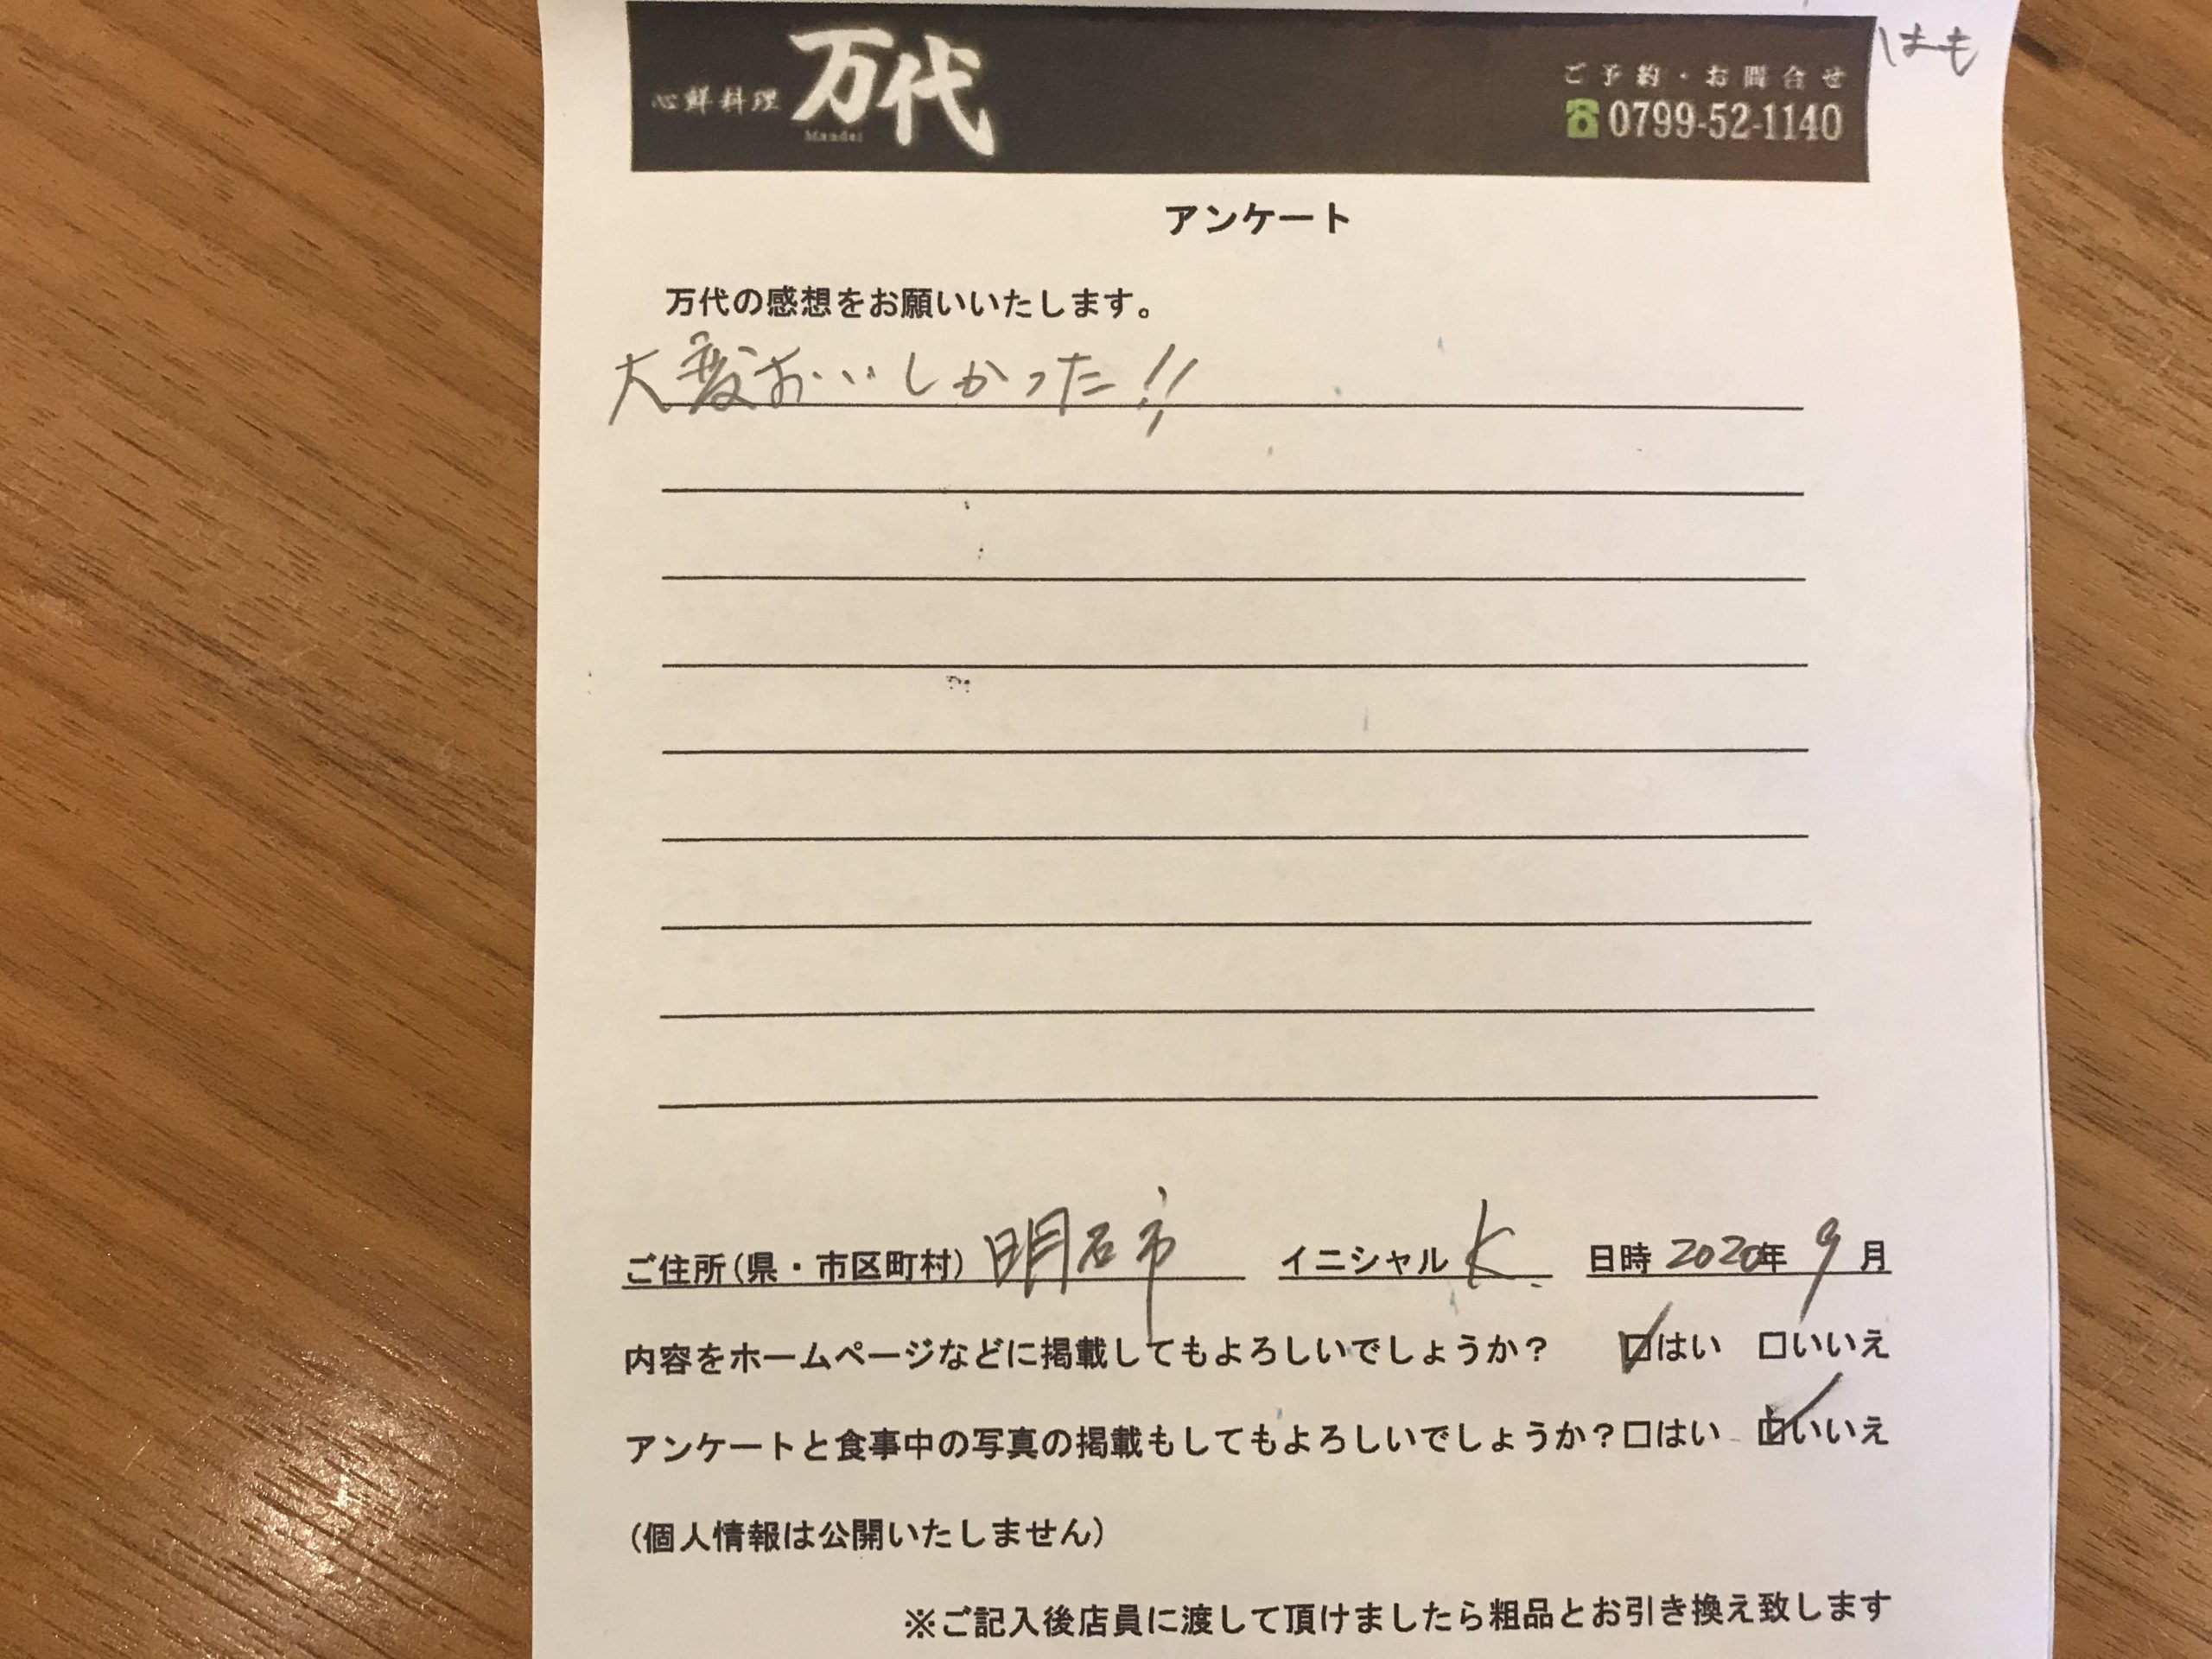 はも
心鮮料理 万代 Mandai
ご予約・お問合せ
0799-52-1140
アンケート
万代の感想をお願いいたします。
大変おいしかった!!
ご住所(県・市区町村) 明石市 イニシャル K. 日時 2020年 9月
内容をホームページなどに掲載してもよろしいでしょうか? ☑はい □いいえ
アンケートと食事中の写真の掲載もしてもよろしいでしょうか?□はい ☑いいえ
(個人情報は公開いたしません)
※ご記入後店員に渡して頂けましたら粗品とお引き換え致します